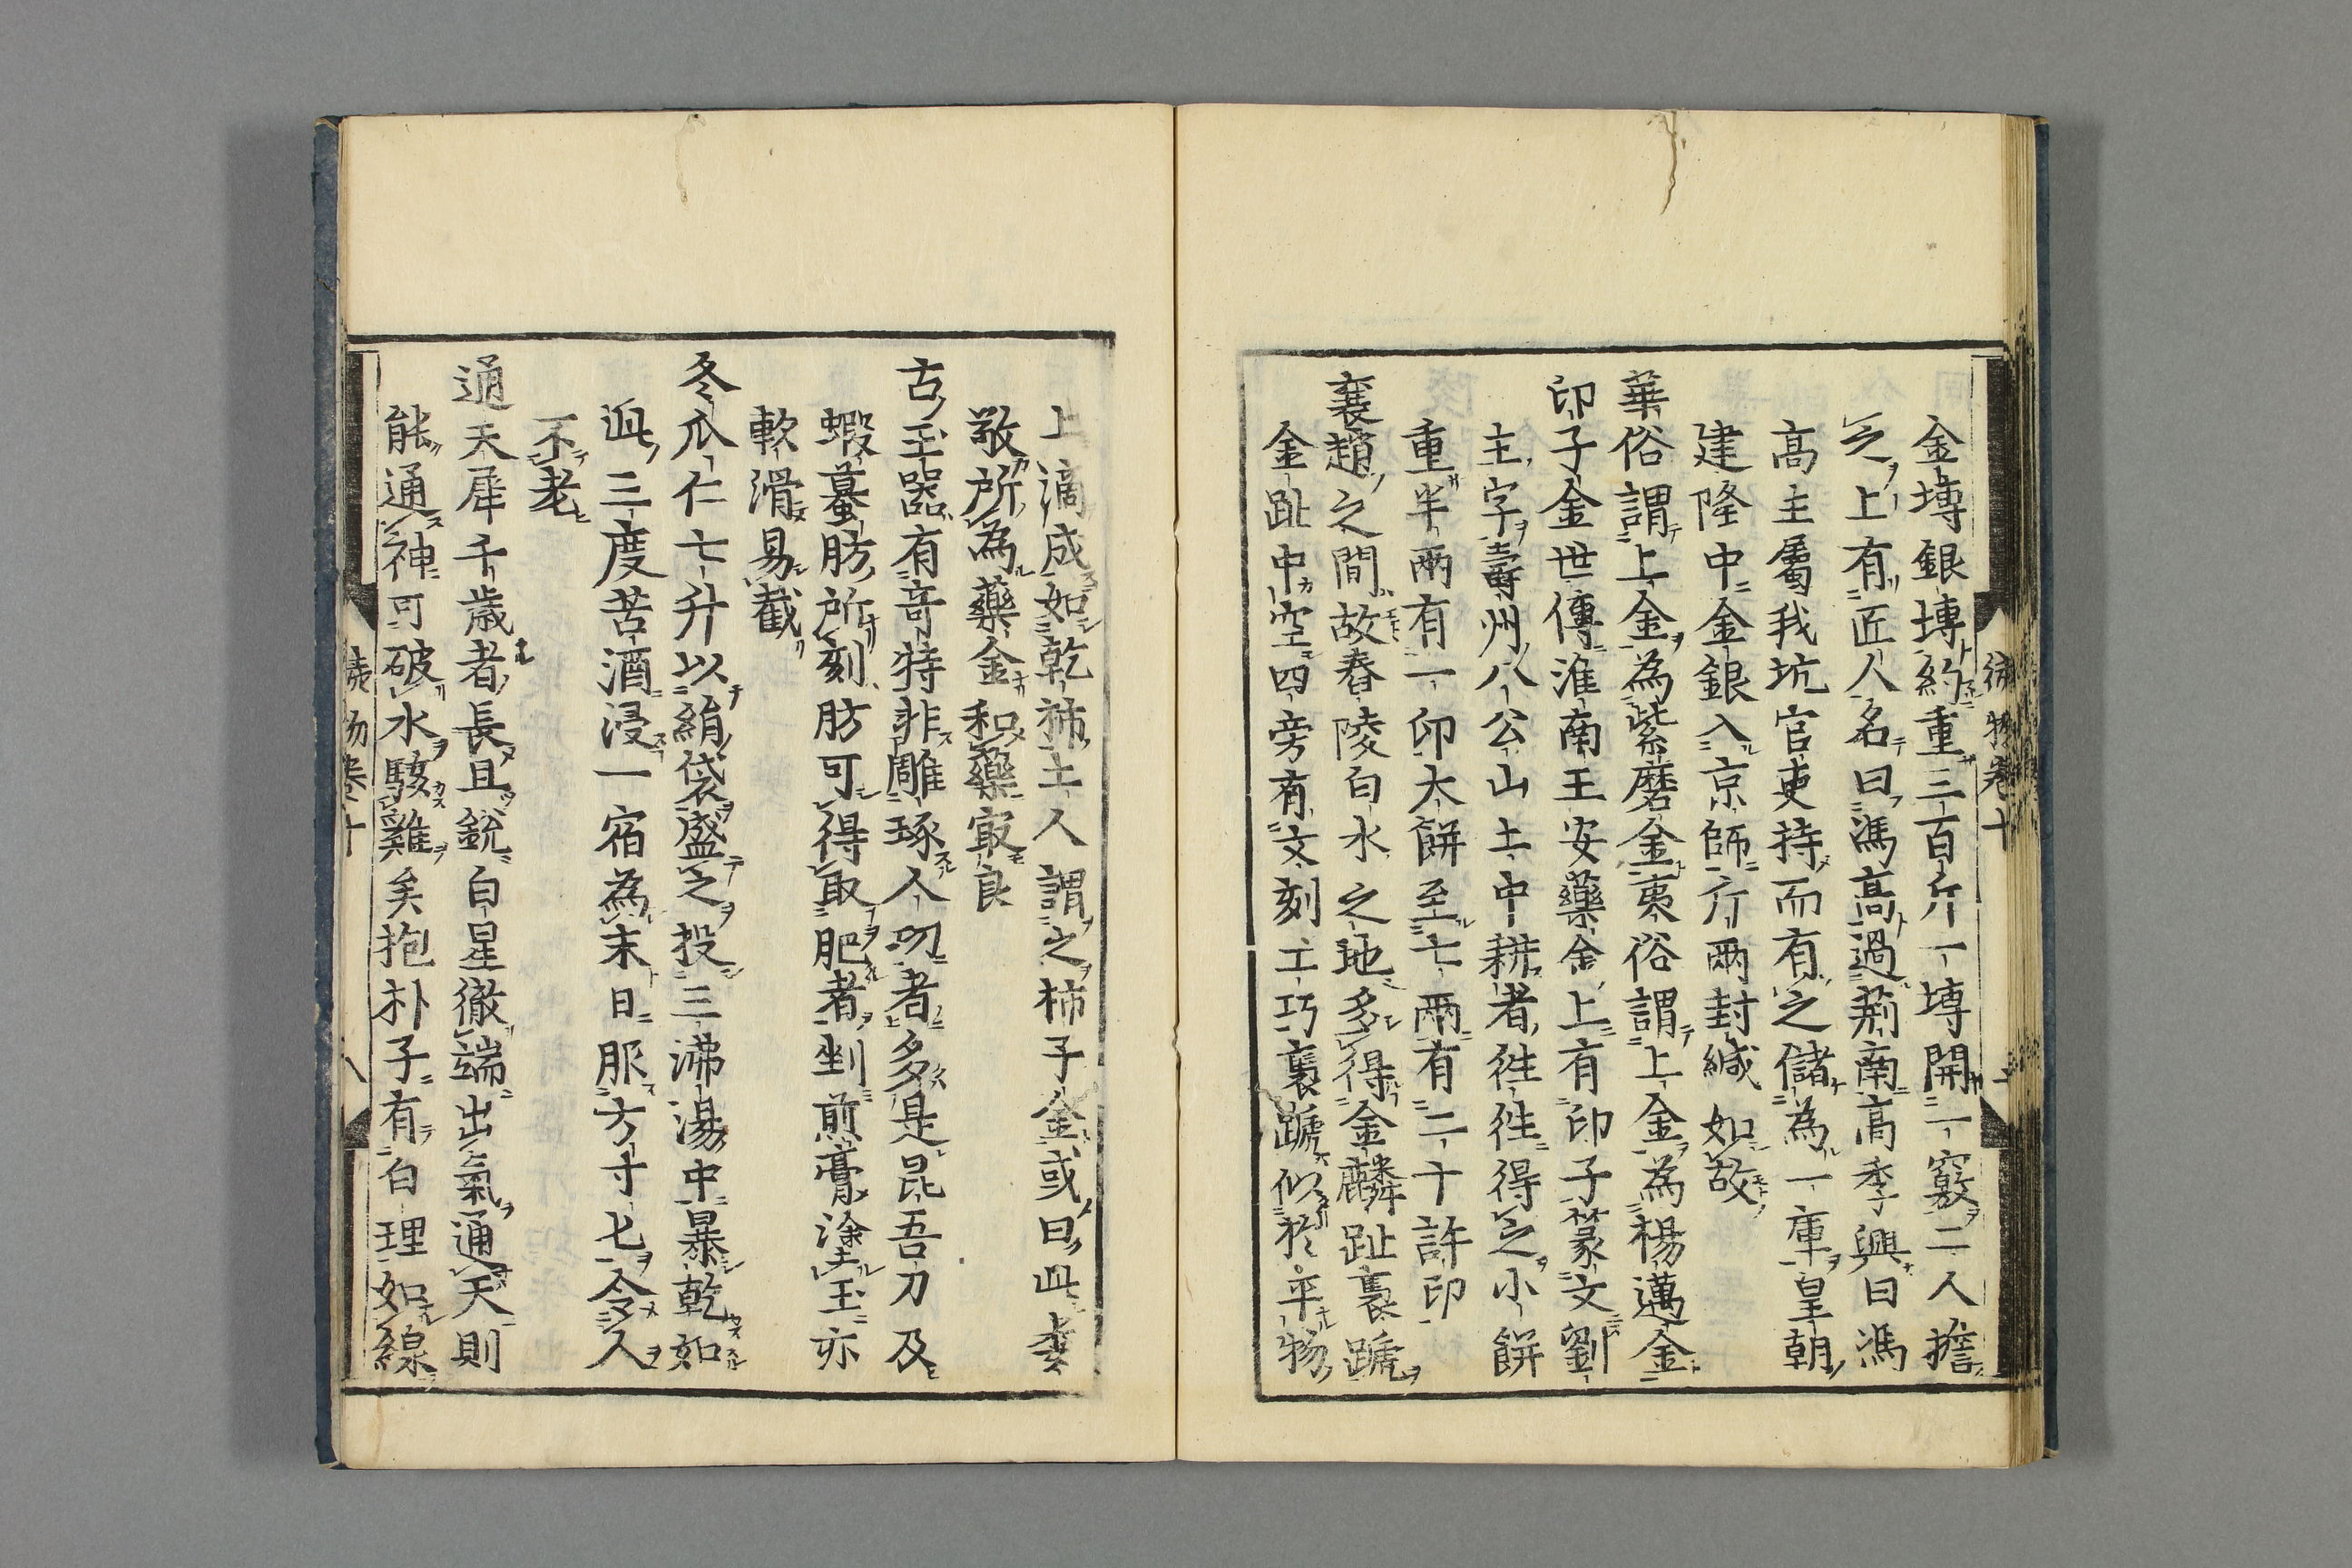 金塼銀塼約重三百斤一塼開一竅二人擔
之上有匠人名曰馮髙過荊南高季興曰馮
髙主屬我坑官吏持而有之儲為一庫皇朝
建隆中金銀入京師斤兩封緘如故
華俗謂上金為紫磨金夷俗謂上金為楊邁金
印子金世傳淮南王安藥金上有印子篆文劉
主字壽州八公山土中耕者徃徃得之小餅
重半兩有一印大餅至七兩有二十許印
襄趙之間故春陵白水之地多得金麟趾裏蹏
金趾中空四旁有文刻工巧裏蹏似於平物
上滴成如乾柿土人謂之柿子金或曰此婁
敬所為藥金和藥㝡良
古玉器有竒特非雕琢人功者多是昆吾刀及
蝦蟇肪所刻肪可得取肥者剉煎膏塗玉亦
軟滑易截
冬瓜仁七升以絹袋盛之投三沸湯中暴乾如
此三度苦酒浸一宿為末日服方寸七令人
不老
通天犀千歳者長且銳白星徹端出氣通天則
能通神可破水駭雞矣抱朴子有白理如線